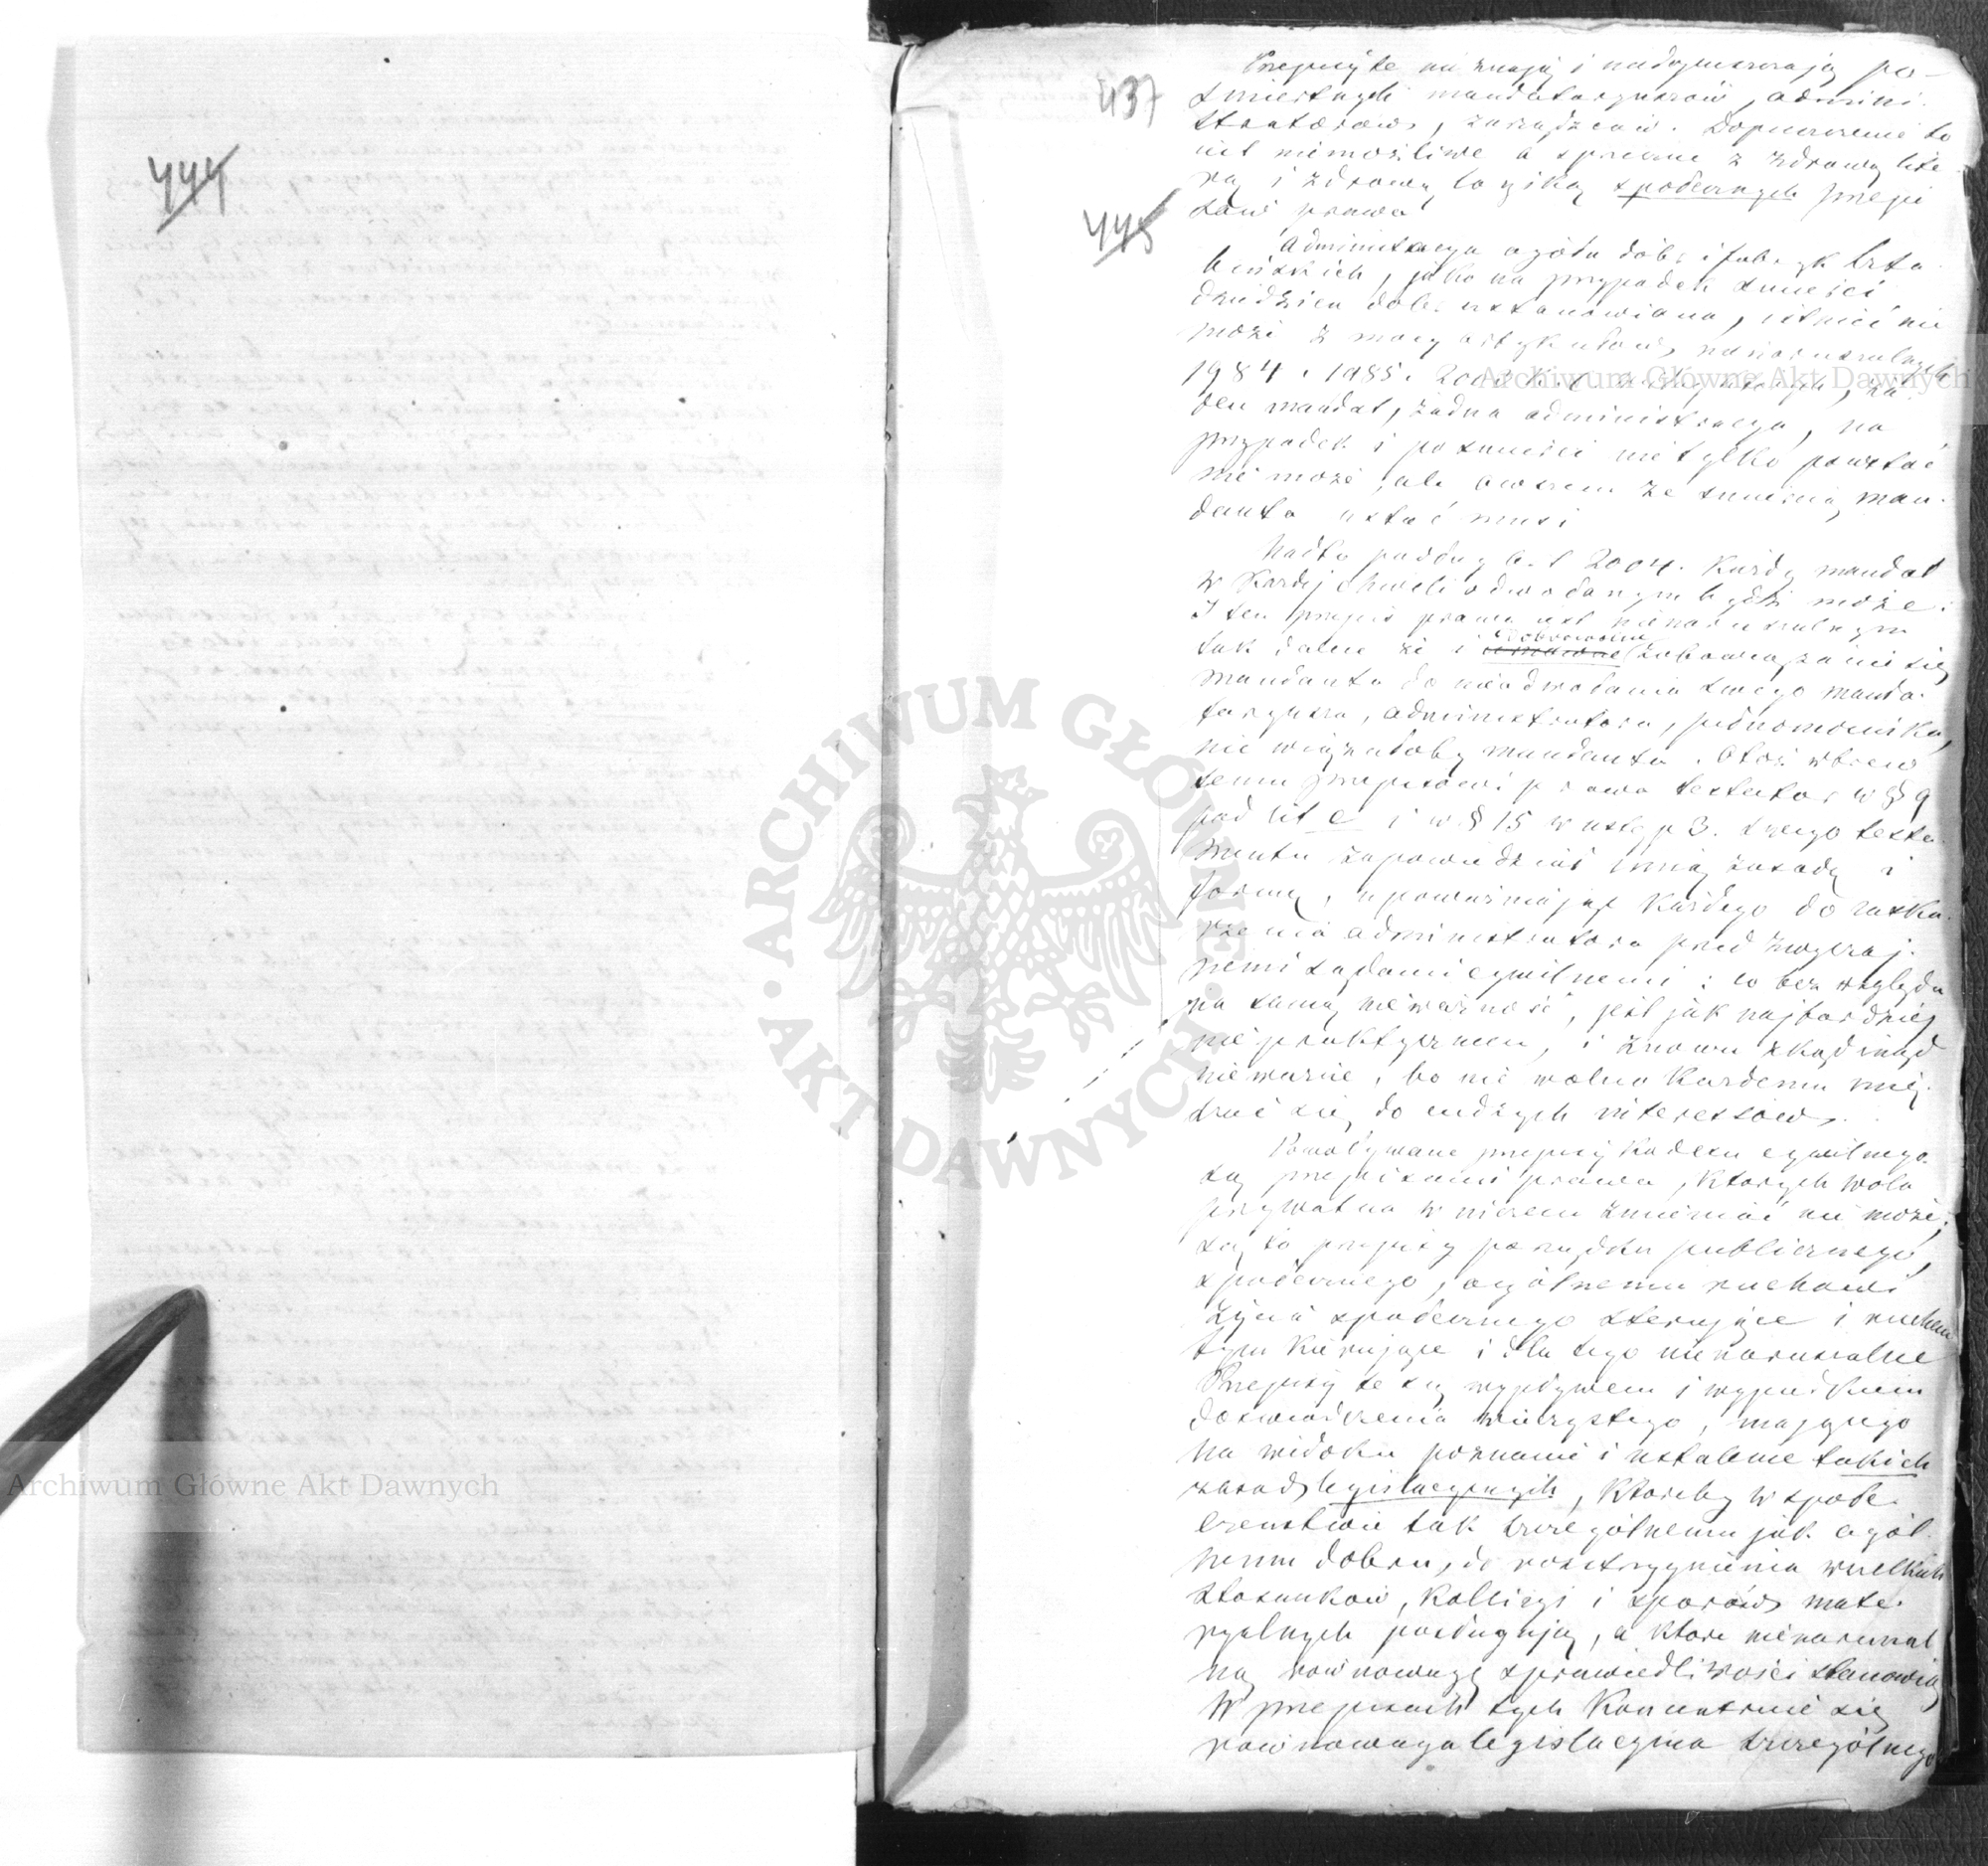 444
437
445
Przepisy te nie znają i niedopuszczają po-
śmiertnych mandataryuszów, admini-
stratorów, zarządzców. Dopuszczenie to
jest niemożliwe a sprzeczne z zdrową lite-
rą i zdrową logiką społecznych przepi
sów prawa
Administracya ogółu dóbr i fabryk
jako na przypadek śmierci
dziedzica dóbr ustanowiona, istnieć nie
może z mocy artykułów nienaruszalnych
1984. 1985. 2003
den mandat, żadna administracya, na
przypadek i po śmierci nietylko powstać
nie może, ale owszem ze śmiercią man-
danta ustać musi
Nadto podług art 2004. każdy mandat
w każdej chwili odwołanym bydź może.
I ten przepis prawa jest nienaruszalnym
dobrowolne
tak dalece że i zobowiązanie się
mandanta do nieodwołania swego manda-
taryusza, administratora, pełnomocnika,
nie wiązałoby mandanta. Otóż wbrew
temu przepisowi prawa testator w § 9
pod lit e i w § 15 w ustęp 3. swego testa-
mentu zapowiedział inną zasadę i
formę, upoważniając każdego do zaska-
rżenia administratora przed zwyczaj-
nemi sądami cywilnemi: co bez względu
na samą nieważność, jest jak najbardziej
niepraktycznem, i znowu zkądinąd
nieważne, bo nie wolno każdemu mię-
szać się do cudzych interessów.
Powoływane przepisy kodexu cywilnego.
są przepisami prawa, których wola
prywatna w niczem zmieniać nie może;
są to przepisy porządku publicznego,
społecznego, ogólnemu ruchowi
życia społecznego sterujące i ruchem
tym kierujące i dla tego nienaruszalne
Przepisy te są wypływem i wypadkiem
doświadczenia wieczystego, mającego
na widoku poznanie i ustalenie takich
zasad legislacyjnych, któreby w społe-
czeństwie tak szczególnemu jak ogól
nemu dobru, do rozstrzygnienia wszelkich
stosunków, kollizyi i sporów mate-
ryalnych posługują, a które nienaruszal
ną równowagę sprawiedliwości stanowią
W przepisach tych koncentruje się
równowaga legislacyjna szczególnego
Archiwum Główne Akt Dawnych
Archiwum Główne Akt Dawnych
ARCHIWUM GŁÓWNE AKT DAWNYCH